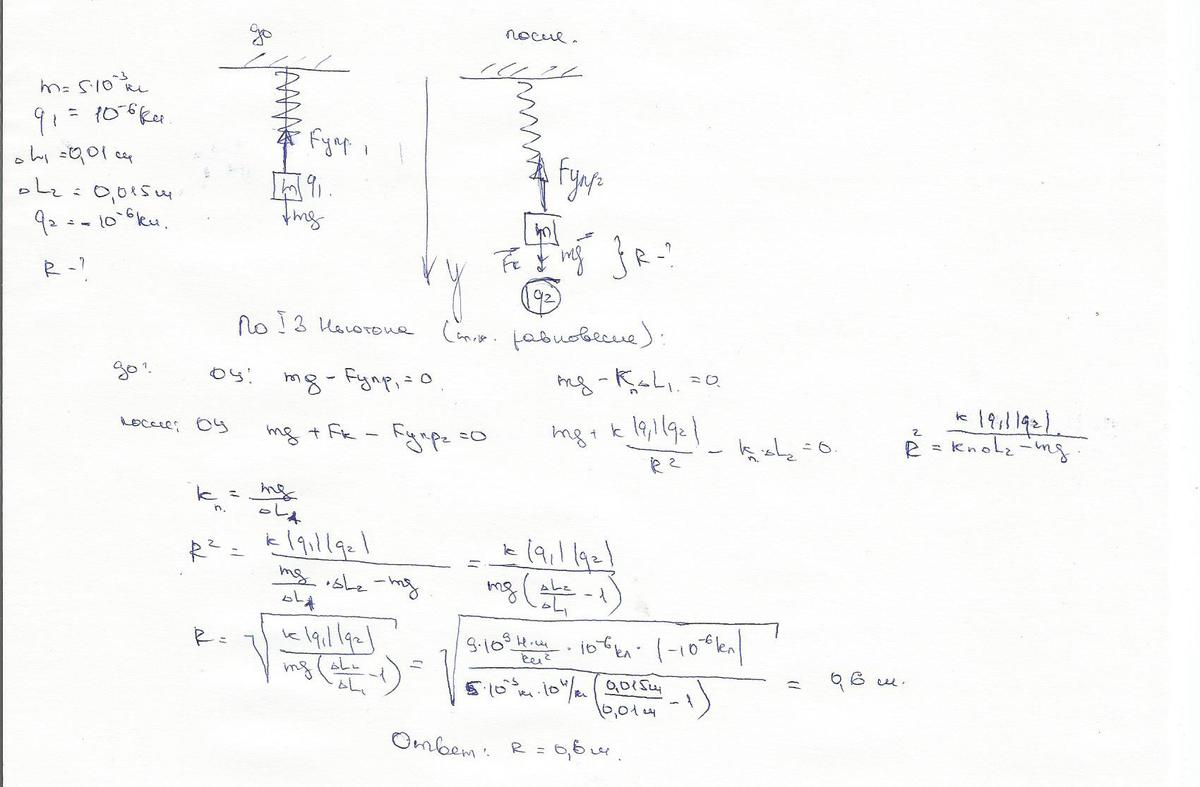 до
после.
m = 5·10⁻³ кг
q₁ = 10⁻⁶ Кл.
ΔL₁ = 0,01 м
ΔL₂ = 0,015 м
q₂ = -10⁻⁶ Кл.
R - ?
Fупр₁
m q₁
mg
y
Fупр₂
m
Fк mg } R - ?
q₂
По I З Ньютона (т.к. равновесие):
до: ОУ: mg - Fупр₁ = 0 mg - Kₙ ΔL₁ = 0.
после: ОУ mg + Fк - Fупр₂ = 0 mg + k|q₁||q₂|/R² - kₙ·ΔL₂ = 0. R² = k|q₁||q₂|/(kₙΔL₂ - mg).
kₙ = mg/ΔL₁
R² = k|q₁||q₂|/(mg/ΔL₁ · ΔL₂ - mg) = k|q₁||q₂|/(mg(ΔL₂/ΔL₁ - 1))
R = √(k|q₁||q₂|/(mg(ΔL₂/ΔL₁ - 1))) = √(9·10⁹ Н·м/Кл² · 10⁻⁶ Кл · |-10⁻⁶ Кл|/(5·10⁻³ кг · 10 Н/кг (0,015 м/0,01 м - 1))) = 0,6 м.
Ответ: R = 0,6 м.